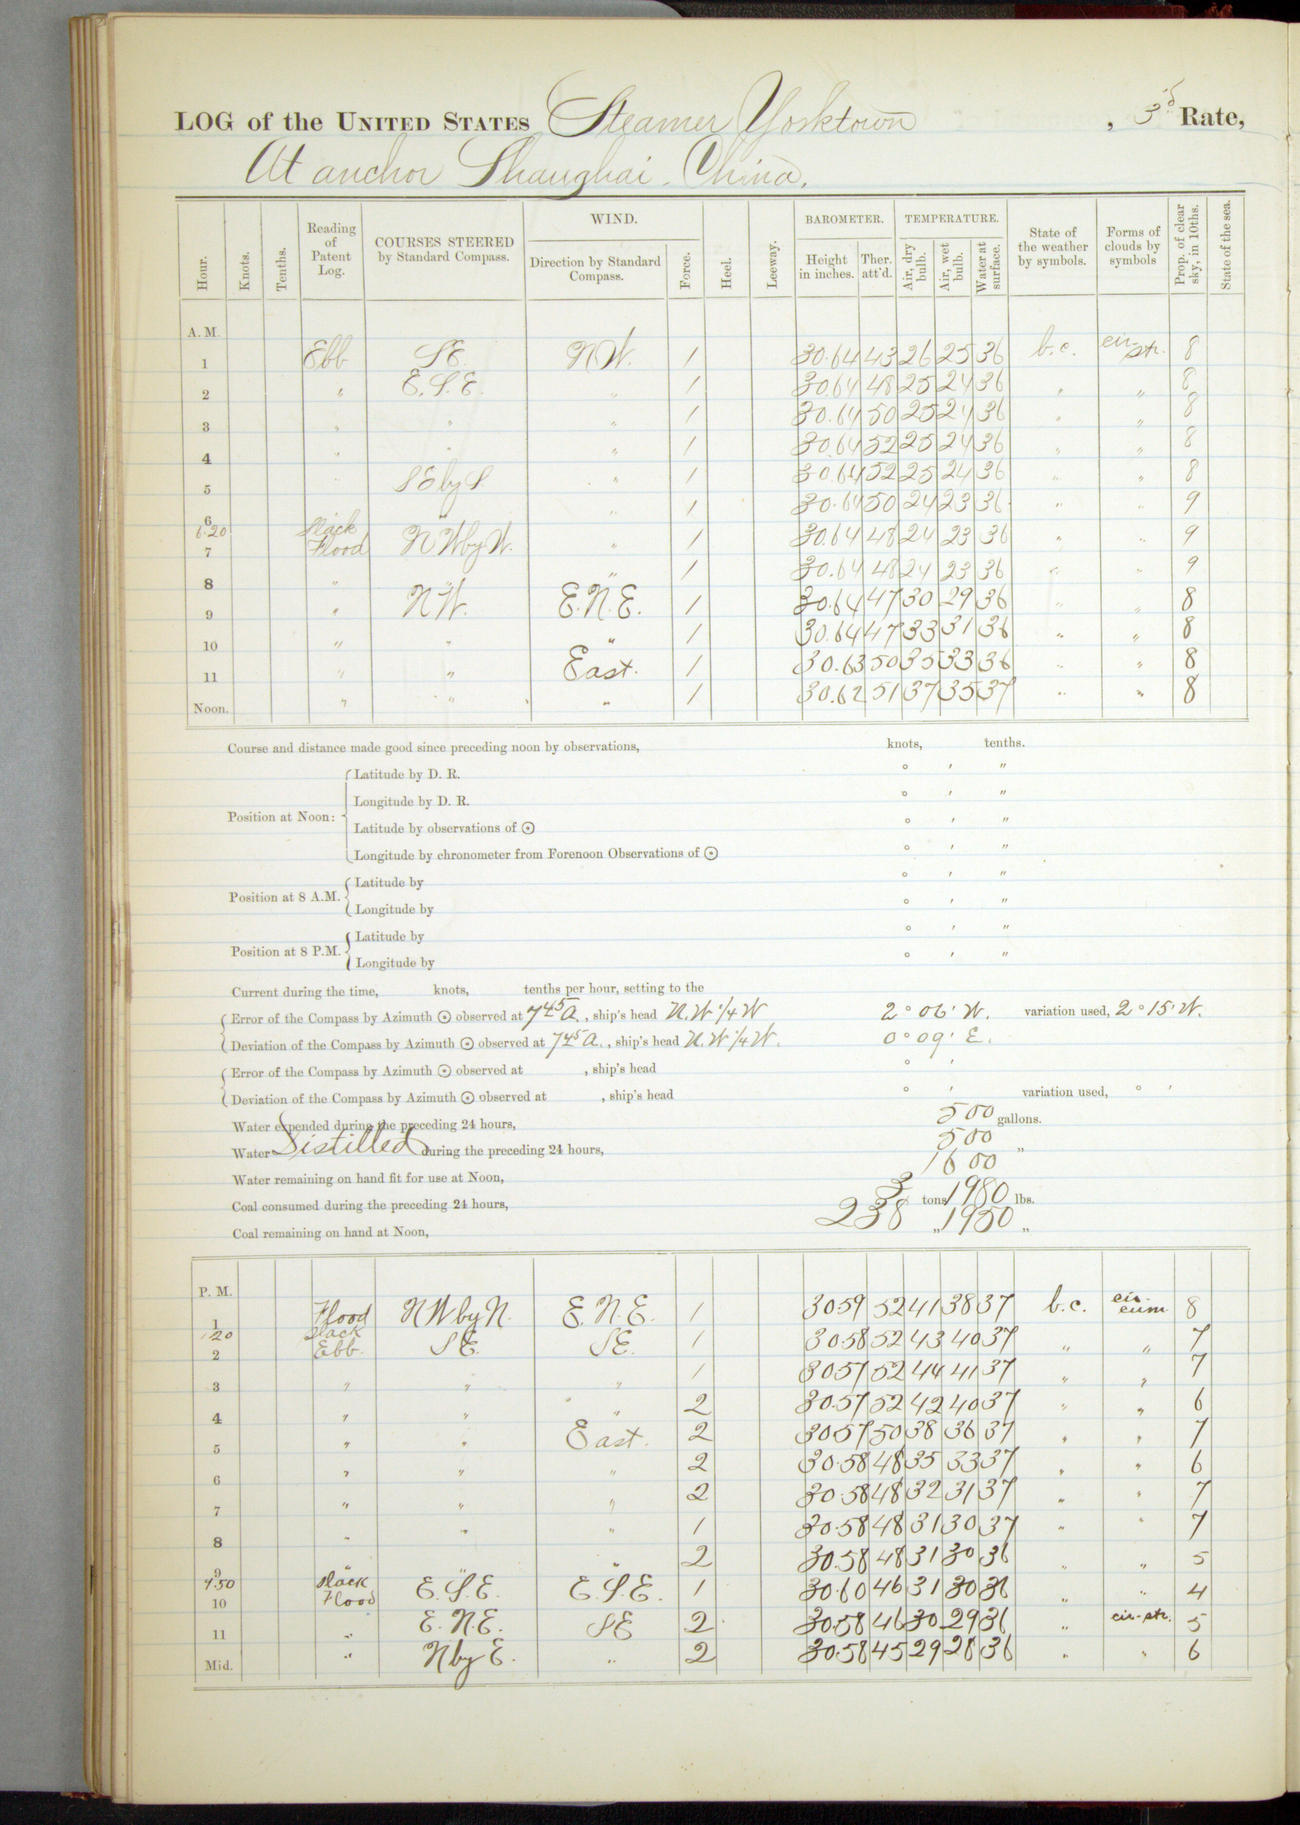 LOG of the UNITED STATES Steamer Yorktown , 3d Rate,
At anchor Shanghai. China.
Hour. Knots. Tenths. Reading of Patent Log. COURSES STEERED by Standard Compass. WIND. Direction by Standard Compass. Force. Heel. Leeway. BAROMETER. Height in inches. Ther. att'd. TEMPERATURE. Air, dry bulb. Air, wet bulb. Water at surface. State of the weather by symbols. Forms of clouds by symbols Prop. of clear sky, in 10ths. State of the sea.
A. M.
1 Ebb SE. NW. 1 30.64 43 26 25 36 b.c. cir-str. 8
2 " E.S.E. " 1 30.64 48 25 24 36 " " 8
3 " " " 1 30.64 50 25 24 36 " " 8
4 " " " 1 30.64 52 25 24 36 " " 8
5 " SEbyS " 1 30.64 52 25 24 36 " " 8
6 " " 1 30.64 50 24 23 36 " " 9
6.20 Slack
7 Flood NWbyW. " 1 30.64 48 24 23 36 " " 9
8 " " " 1 30.64 48 24 23 36 " " 9
9 " NW. E.N.E. 1 30.64 47 30 29 36 " " 8
10 " " " 1 30.64 47 33 31 36 " " 8
11 " " East. 1 30.63 50 35 33 36 " " 8
Noon. " " " 1 30.62 51 37 35 37 " " 8
Course and distance made good since preceding noon by observations, knots, tenths.
Position at Noon: Latitude by D. R. ° ′ ″
Longitude by D. R. ° ′ ″
Latitude by observations of ☉ ° ′ ″
Longitude by chronometer from Forenoon Observations of ☉ ° ′ ″
Position at 8 A.M. Latitude by ° ′ ″
Longitude by ° ′ ″
Position at 8 P.M. Latitude by ° ′ ″
Longitude by ° ′ ″
Current during the time, knots, tenths per hour, setting to the
Error of the Compass by Azimuth ☉ observed at 7 45 a. , ship's head N.W. 1/4 W 2° 06′ W. variation used, 2° 15′ W.
Deviation of the Compass by Azimuth ☉ observed at 7 45 a. , ship's head N.W. 1/4 W. 0° 09′ E.
Error of the Compass by Azimuth ☉ observed at , ship's head ° ′
Deviation of the Compass by Azimuth ☉ observed at , ship's head ° ′ variation used, ° ′
Water expended during the preceding 24 hours, 500 gallons.
Water Distilled during the preceding 24 hours, 500 "
Water remaining on hand fit for use at Noon, 1600
Coal consumed during the preceding 24 hours, 3 tons 1980 lbs.
Coal remaining on hand at Noon, 238 " 1950 "
P. M.
1 Flood NWbyN. E.N.E. 1 30.59 52 41 38 37 b.c. cir-cum 8
1.20 Slack
2 Ebb. SE. SE. 1 30.58 52 43 40 37 " " 7
3 " " " 1 30.57 52 44 41 37 " " 7
4 " " " 2 30.57 52 42 40 37 " " 6
5 " " East. 2 30.57 50 38 36 37 " " 7
6 " " " 2 30.58 48 35 33 37 " " 6
7 " " " 2 30.58 48 32 31 37 " " 7
8 " " " 1 30.58 48 31 30 37 " " 7
9 " " " 2 30.58 48 31 30 36 " " 5
9.50 Slack
10 Flood E.S.E. E.S.E. 1 30.60 46 31 30 36 " " 4
11 " E.N.E. SE 2 30.58 46 30 29 36 " cir-str. 5
Mid. " NbyE. " 2 30.58 45 29 28 36 " " 6